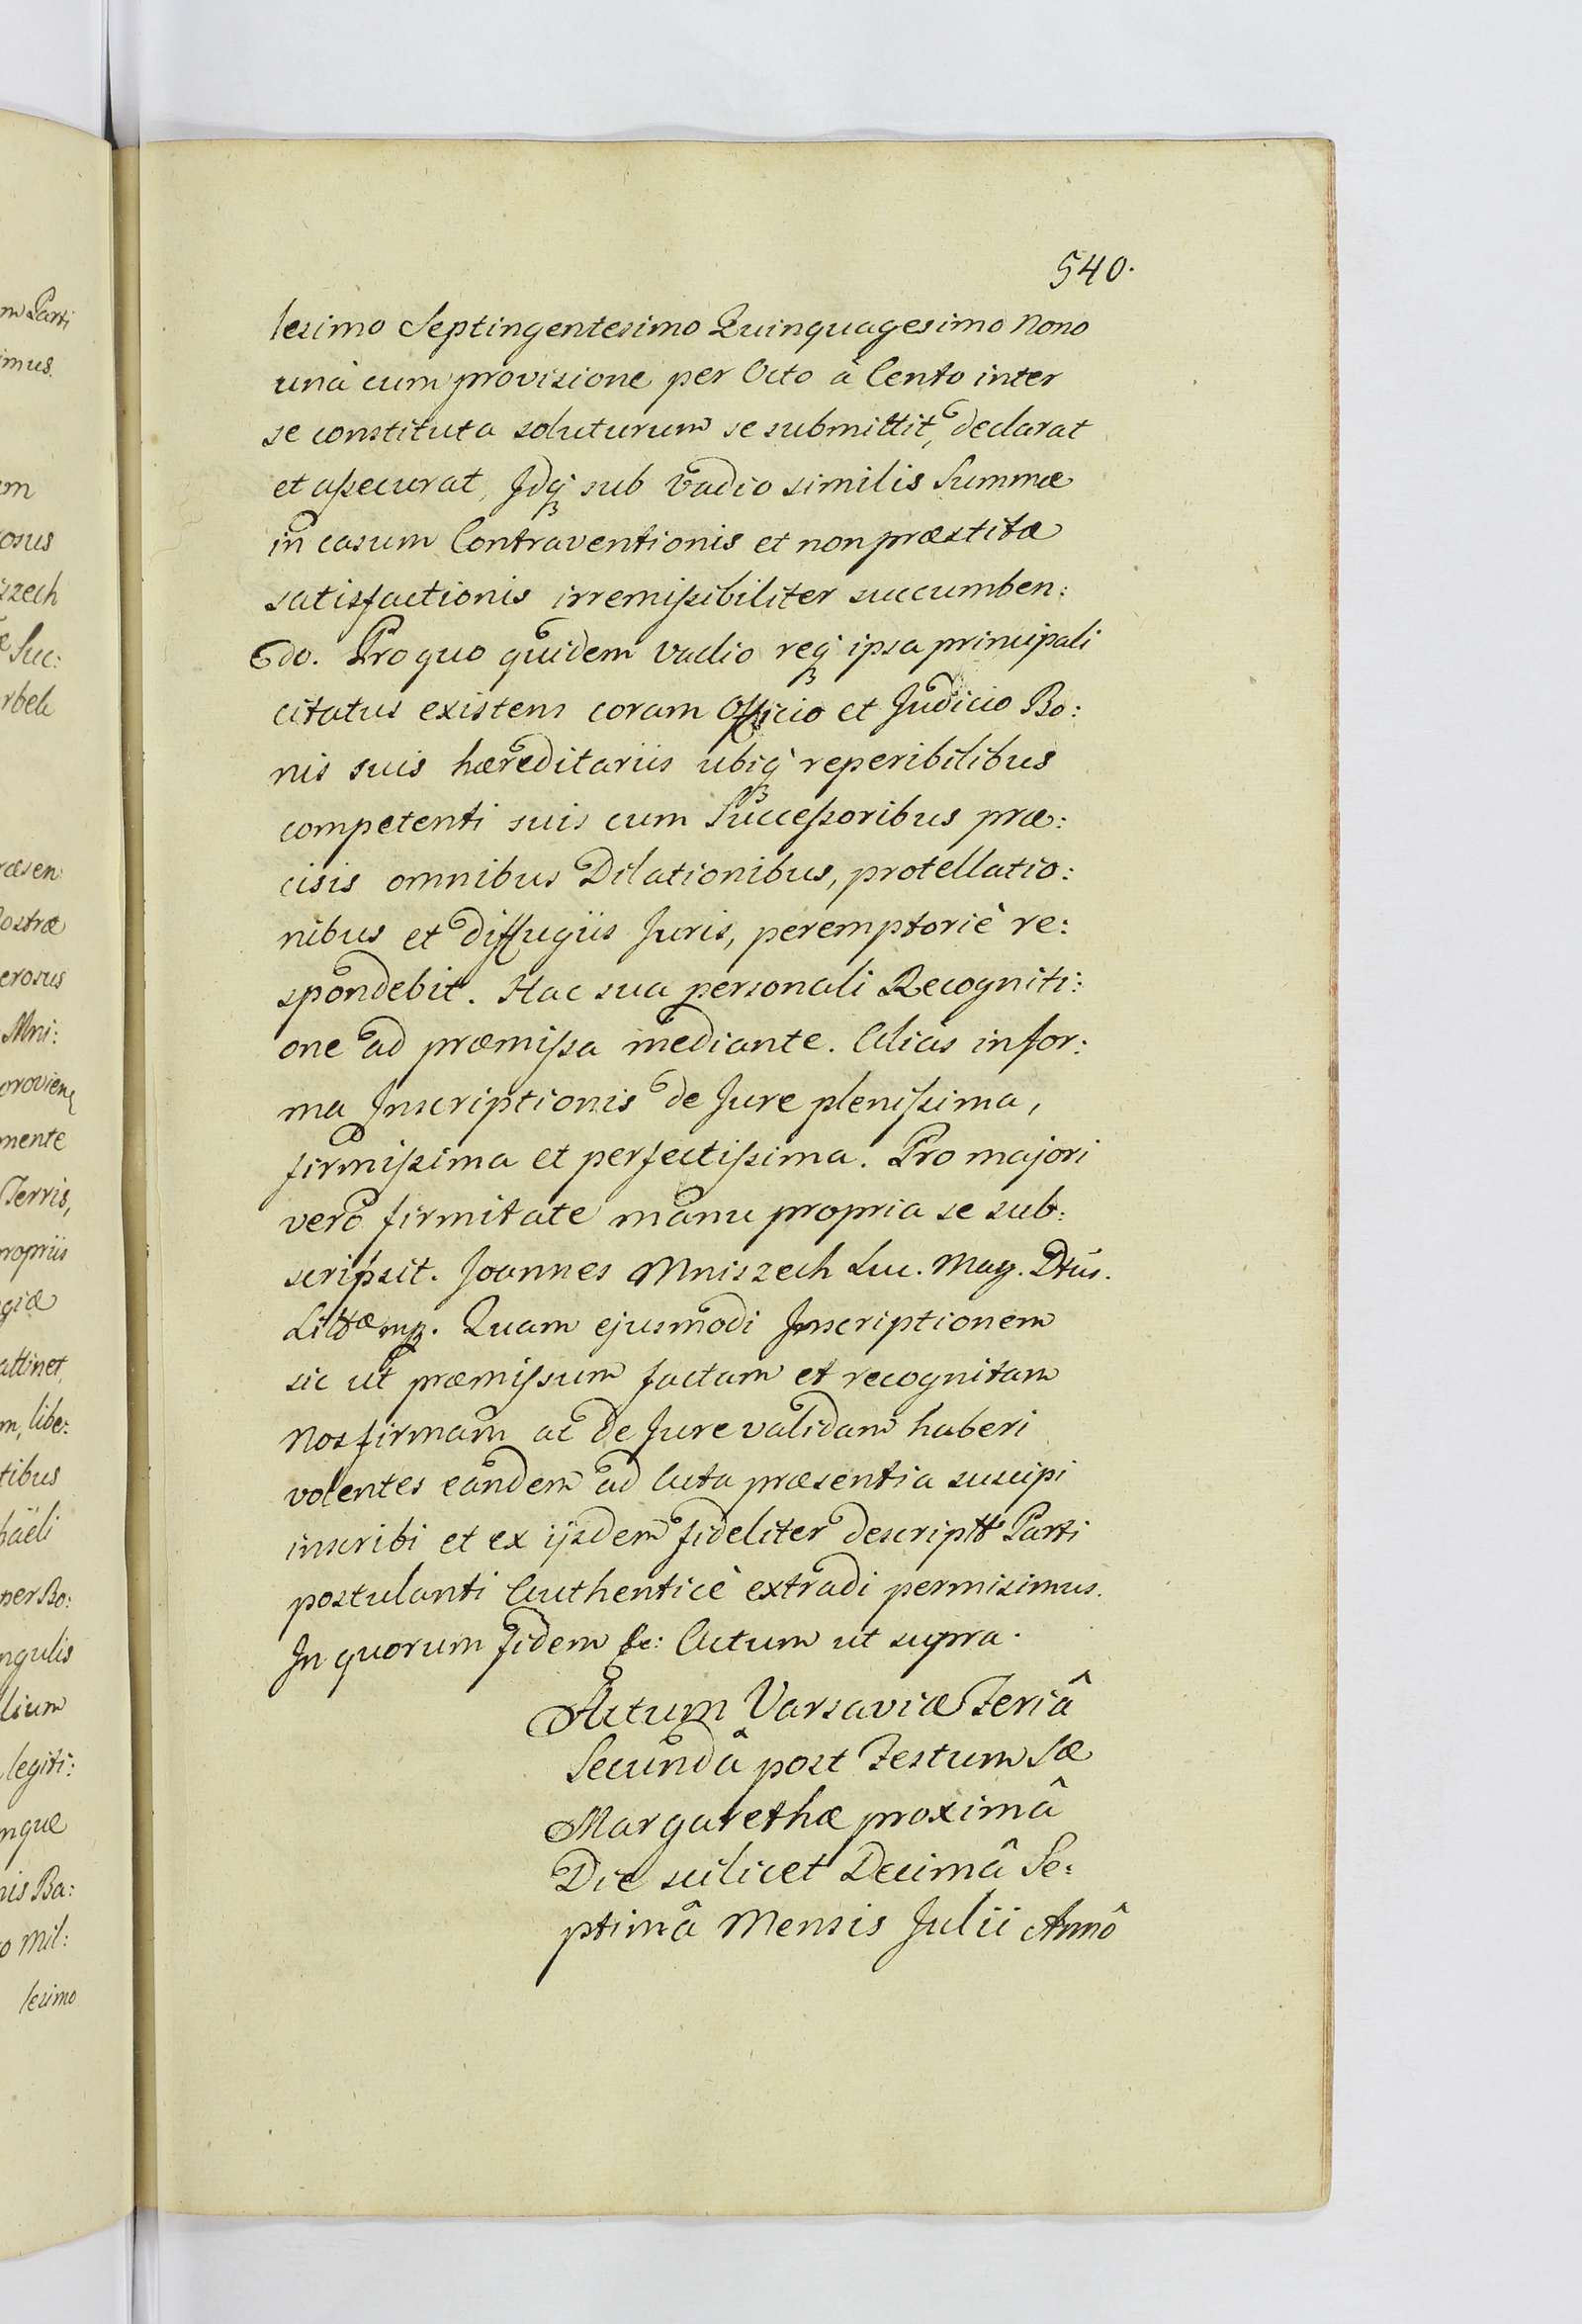 540.
lesimo Septingentesimo Quinquagesimo Nono
unà cum provisione per Octo à Cento inter
se constituta soluturum se submittit, declarat
et assecurat, Jdq₃ sub vadio similis Summæ
in casum Contraventionis et non præstitæ
satisfactionis irremissibiliter succumben:
do. Pro quo quidem vadio req₃ ipsa principali
citatus existens coram Officio et Judicio Bo:
nis suis hæreditariis ubiq₃ reperibilibus
competenti suis cum Successoribus præ:
cisis omnibus Dilationibus, protellatio:
nibus et diffugiis Juris, peremptoriè re:
spondebit. Hac sua personali Recogniti:
one ad præmissa mediante. Alias in for:
ma Inscriptionis de Jure plenissima,
firmissima et perfectissima. Pro majori
verò firmitate manu propria se sub:
scripsit. Joannes Mniszech Suc. Mag. D
Litt
æ mp. Quam ejusmodi Inscriptionem
sic ut præmissum factam et recognitam
Nos firmam ac de Jure validam haberi
volentes eandem ad Acta præsentia suscipi
inscribi et ex ijsdem fideliter descriptt Parti
postulanti Authenticè extradi permisimus.
In quorum fidem &c: Actum ut supra.
Actum Varsaviæ Feriâ
Secundâ post Festum Sæ
Margarethæ proximâ
Die scilicet Decimâ Se:
ptimâ Mensis Julii Annô
m Parti
imus.
osus
szech
Suc:
ræsen:
ostræ
erosus
Mni:
mente
Terris,
propriis
giæ
attinet,
m, libe:
tibus
per Bo:
ngulis
lium
legiti:
nque
nis Ba:
o Mil:
lesimo